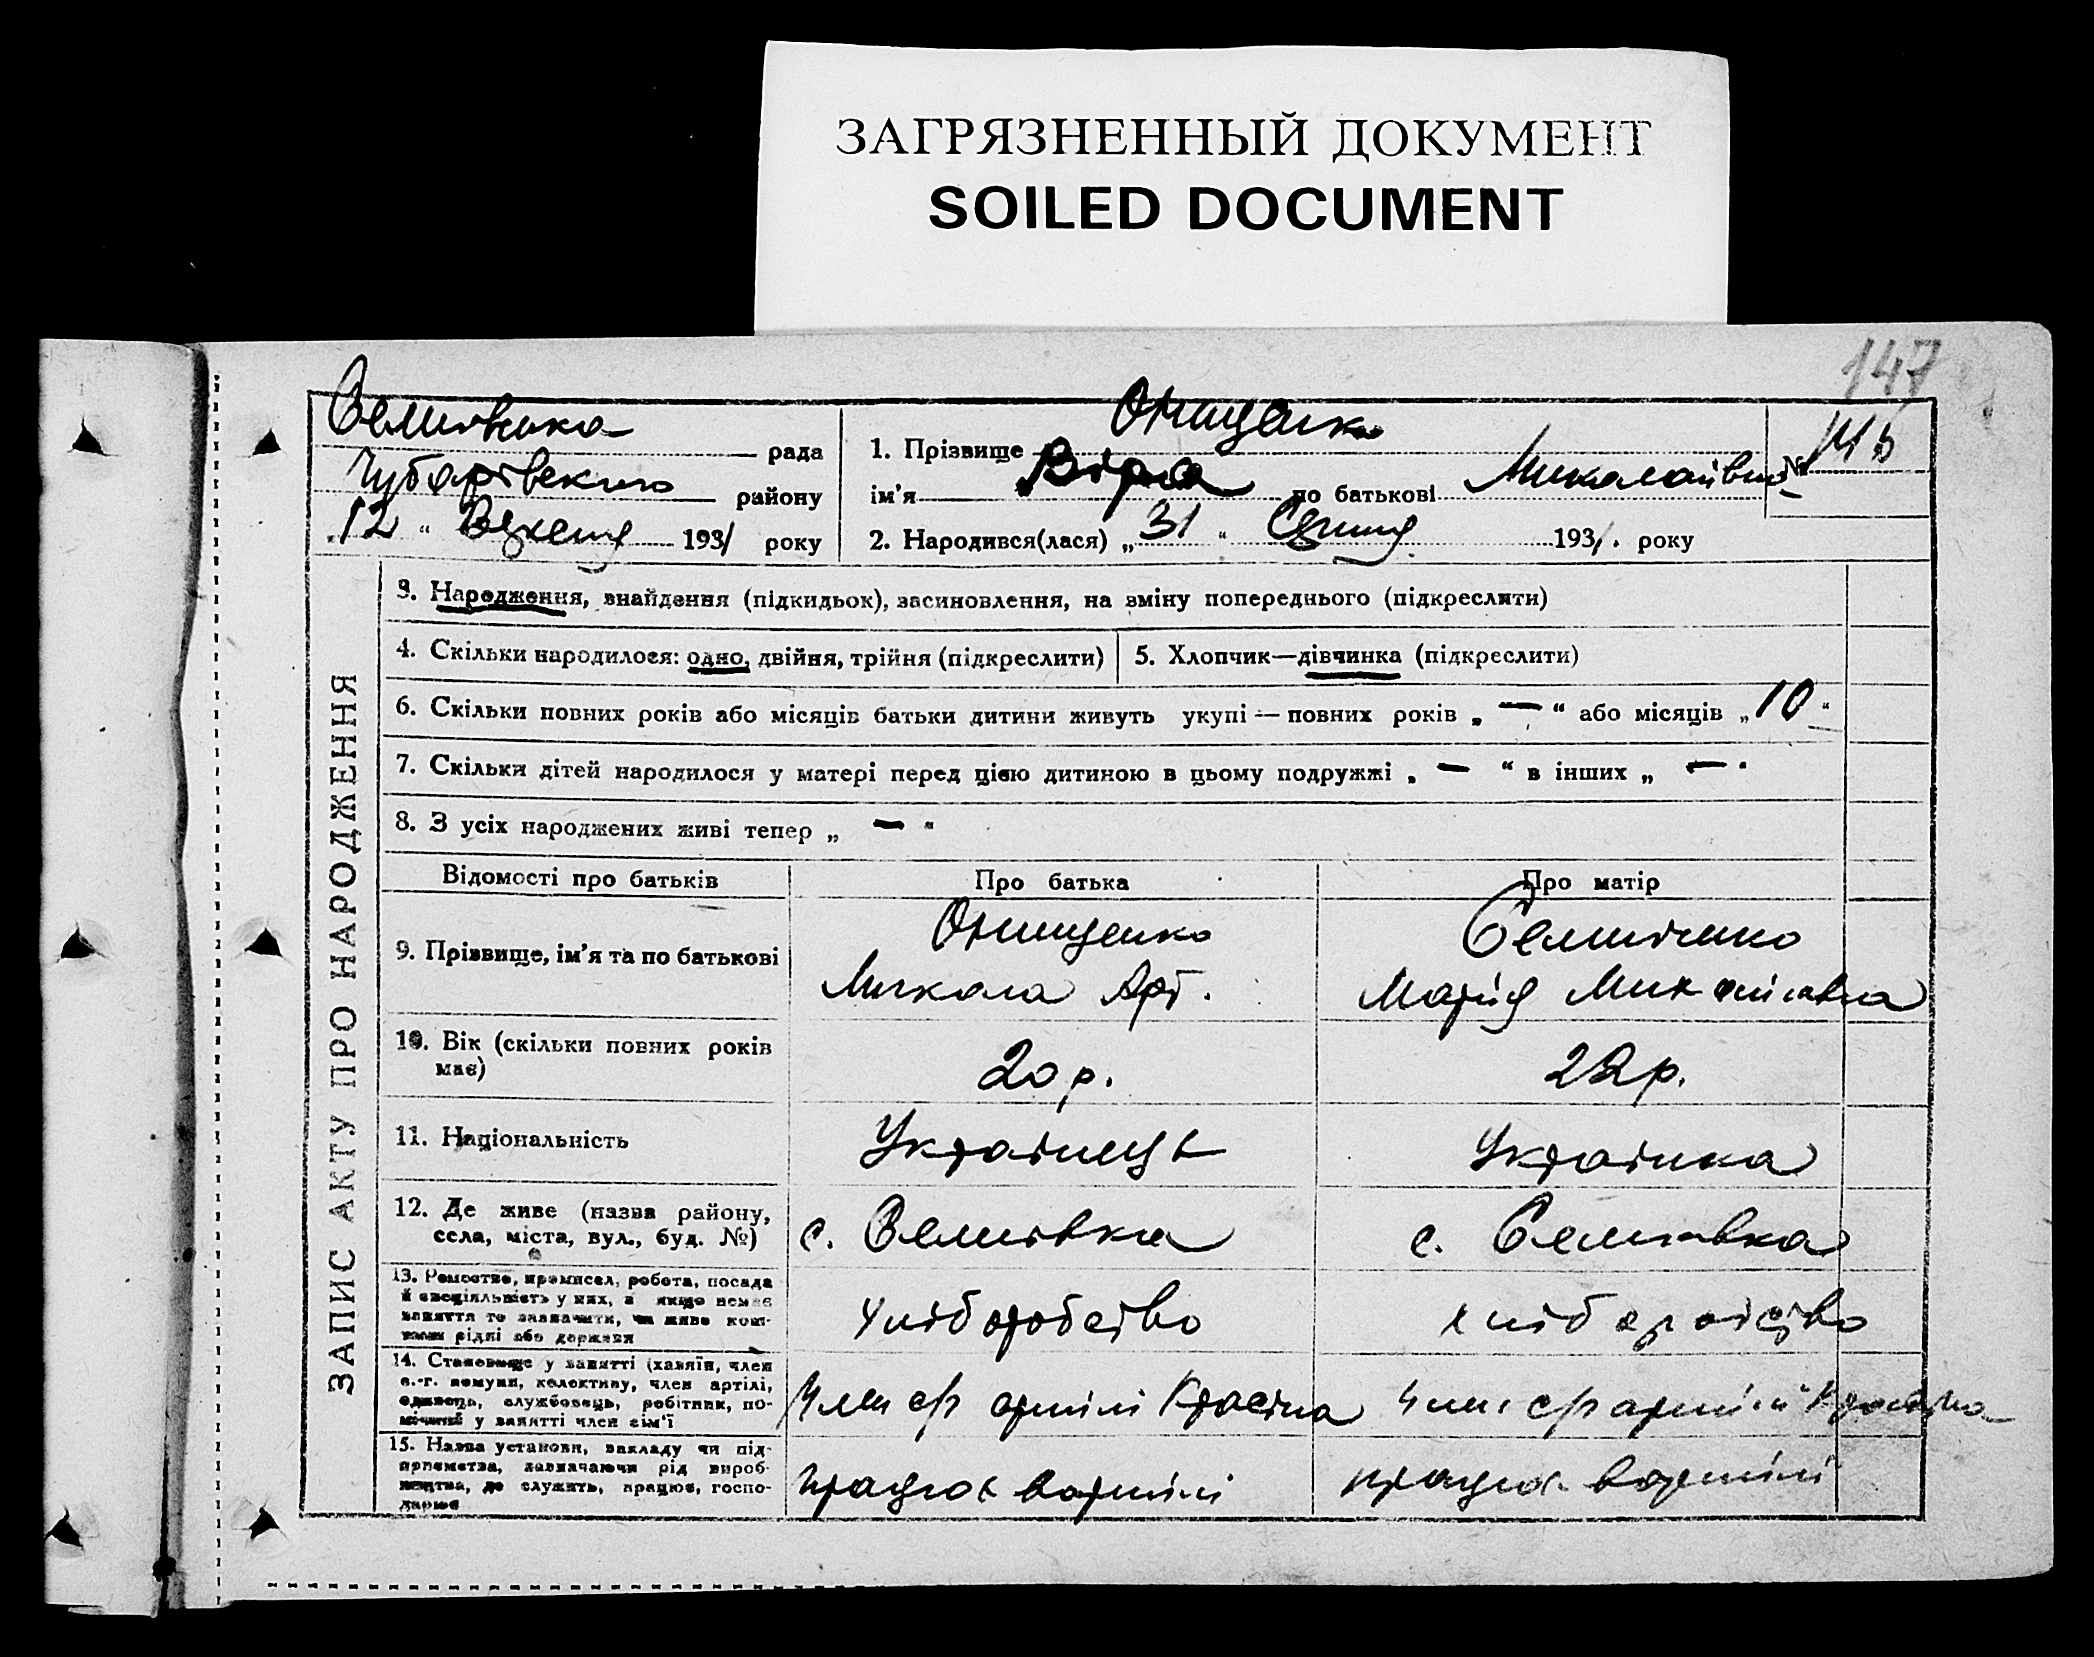 ЗАГРЯЗНЕННЫЙ ДОКУМЕНТ
SOILED DOCUMENT
147
рада
Чубарівського району
„12“ Вересня 1931 року
1. Прізвище Онищенко
ім'я Віра по батькові Миколаївна
№ 145
2. Народився(лася) „31“ Серпня 1931. року
ЗАПИС АКТУ ПРО НАРОДЖЕННЯ
3. Народження, знайдення (підкидьок), засиновлення, на зміну попереднього (підкреслити)
4. Скільки народилося: одно, двійня, трійня (підкреслити)
5. Хлопчик—дівчинка (підкреслити)
6. Скільки повних років або місяців батьки дитини живуть укупі — повних років „—“ або місяців „10“
7. Скільки дітей народилося у матері перед цією дитиною в цьому подружжі „—“ в інших „—“
8. З усіх народжених живі тепер „—“
Відомості про батьків
Про батька
Про матір
9. Прізвище, ім'я та по батькові
Онищенко
Микола Арт.
Марія
10. Вік (скільки повних років
має)
20 р.
22 р.
11. Національність
Українець
Українка
12. Де живе (назва району,
села, міста, вул., буд. №)
с.
с.
13. Ремество, промисел, робота, посада
й спеціяльність у них, а якщо немає
заняття то зазначити, чи живе кош-
тами рідні або держави
Хліборобство
хліборобство
14. Становище у занятті (хазяїн, член
с.-г. комуни, колективу, член артілі,
одинець, службовець, робітник, по-
мічний у занятті член сім'ї
Член с/г артілі
Член с/г артілі
15. Назва установи, закладу чи під-
приємства, зазначаючи рід вироб-
ництва, де служить, працює, госпо-
дарює
працює в артілі
працює в артілі